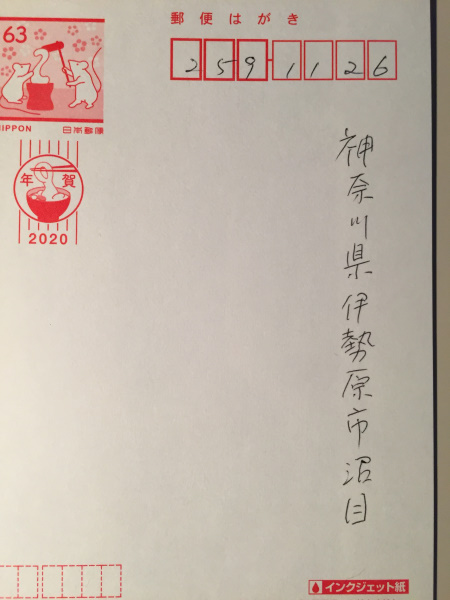 郵便はがき
63
259-1126
NIPPON 日本郵便
年賀
2020
神奈川県伊勢原市沼目
インクジェット紙